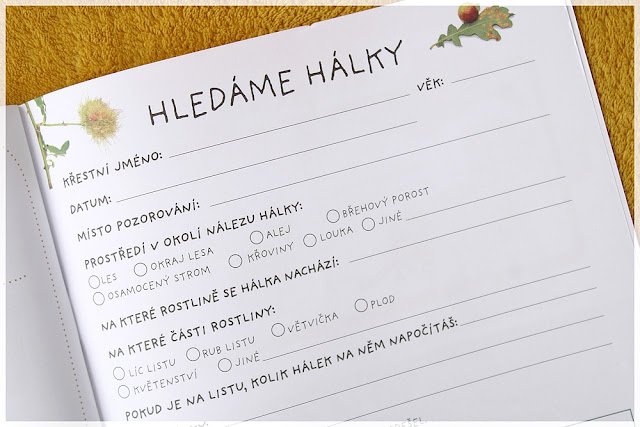 HLEDÁME HÁLKY
KŘESTNÍ JMÉNO: VĚK:
DATUM:
MÍSTO POZOROVÁNÍ:
PROSTŘEDÍ V OKOLÍ NÁLEZU HÁLKY:
LES OKRAJ LESA ALEJ BŘEHOVÝ POROST
OSAMOCENÝ STROM KŘOVINY LOUKA JINÉ
NA KTERÉ ROSTLINĚ SE HÁLKA NACHÁZÍ:
NA KTERÉ ČÁSTI ROSTLINY:
LÍC LISTU RUB LISTU VĚTVIČKA PLOD
KVĚTENSTVÍ JINÉ
POKUD JE NA LISTU, KOLIK HÁLEK NA NĚM NAPOČÍTÁŠ: